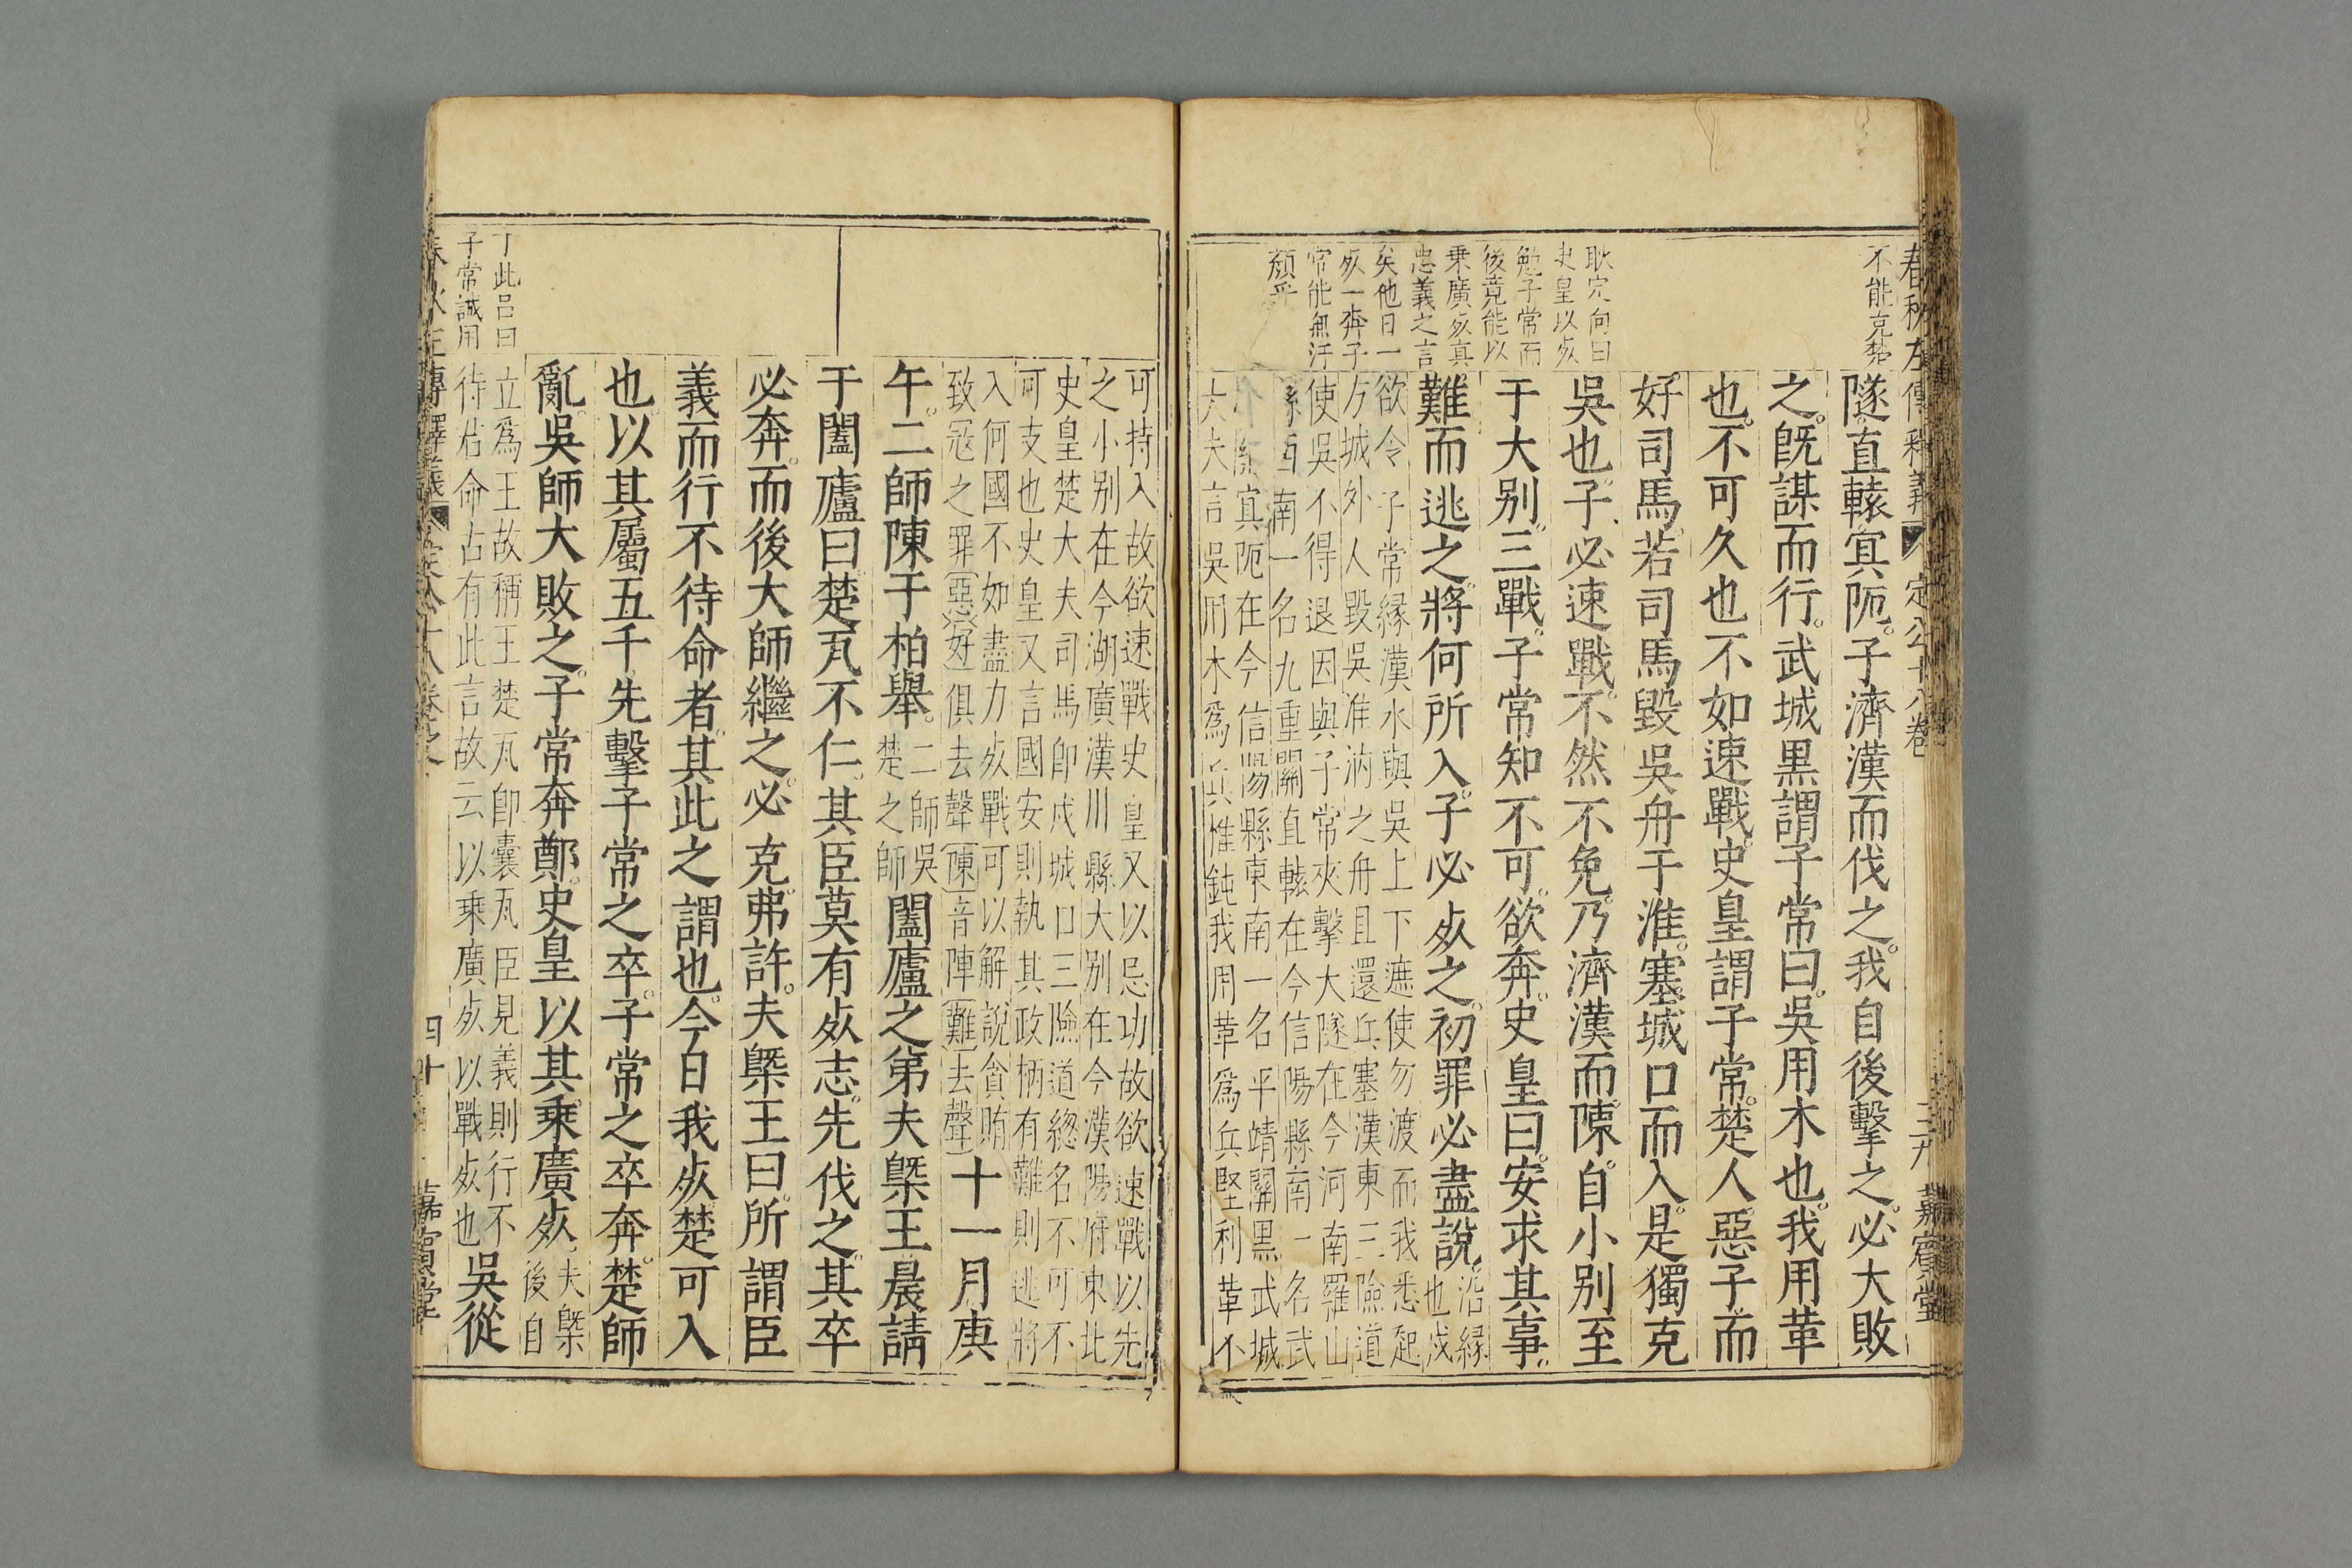 春秋左傳釋義 定公十八卷 三九 嘉賓堂
不能克楚
隧直轅寘阨子濟漢而伐之我自後擊之必大敗
之旣謀而行武城黒謂子常曰吳用木也我用革
也不可久也不如速戰史皇謂子常楚人惡子而
好司馬若司馬毀吳舟于淮塞城口而入是獨克
吳也子必速戰不然不免乃濟漢而陳自小别至
于大别三戰子常知不可欲奔史皇曰安求其事
難而逃之將何所入子必死之初罪必盡説
沿緣
也戍
欲令子常緣漢水與吳上下遮使勿渡而我悉起
方城外人毀吳淮汭之舟且還兵塞漢東三險道
使吳不得退因與子常夾擊大隧在今河南羅山
縣西南一名九重關直轅在今信陽縣南一名武
寘阨在今信陽縣東南一名平靖關黒武城
大夫言吳用木爲兵惟鈍我用革爲兵堅利革不
史皇以死
勉子常而
後竟能以
乗廣死真
忠義之言
矣他日一
死一奔子
常能無汗
顔乎
可持入故欲速戰史皇又以忌功故欲速戰以先
之小别在今湖廣漢川縣大别在今漢陽府東北
史皇楚大夫司馬卽戍城口三險道總名不可不
可支也史皇又言國安則執其政柄有難則逃將
入何國不如盡力死戰可以解說貪賄
致冦之罪惡好俱去聲陳音陣難去聲
十一月庚
午二師陳于柏舉
二師吳
楚之師
闔廬之弟夫㮣王晨請
于闔廬曰楚瓦不仁其臣莫有死志先伐之其卒
必奔而後大師繼之必克弗許夫㮣王曰所謂臣
義而行不待命者其此之謂也今日我死楚可入
也以其屬五千先擊子常之卒子常之卒奔楚師
亂吳師大敗之子常奔鄭史皇以其乗廣死
夫㮣
後自
立爲王故稱王楚瓦卽囊瓦臣見義則行不
待君命古有此言故云以乗廣死以戰死也
吳從
子常誠用
四十 嘉賓堂